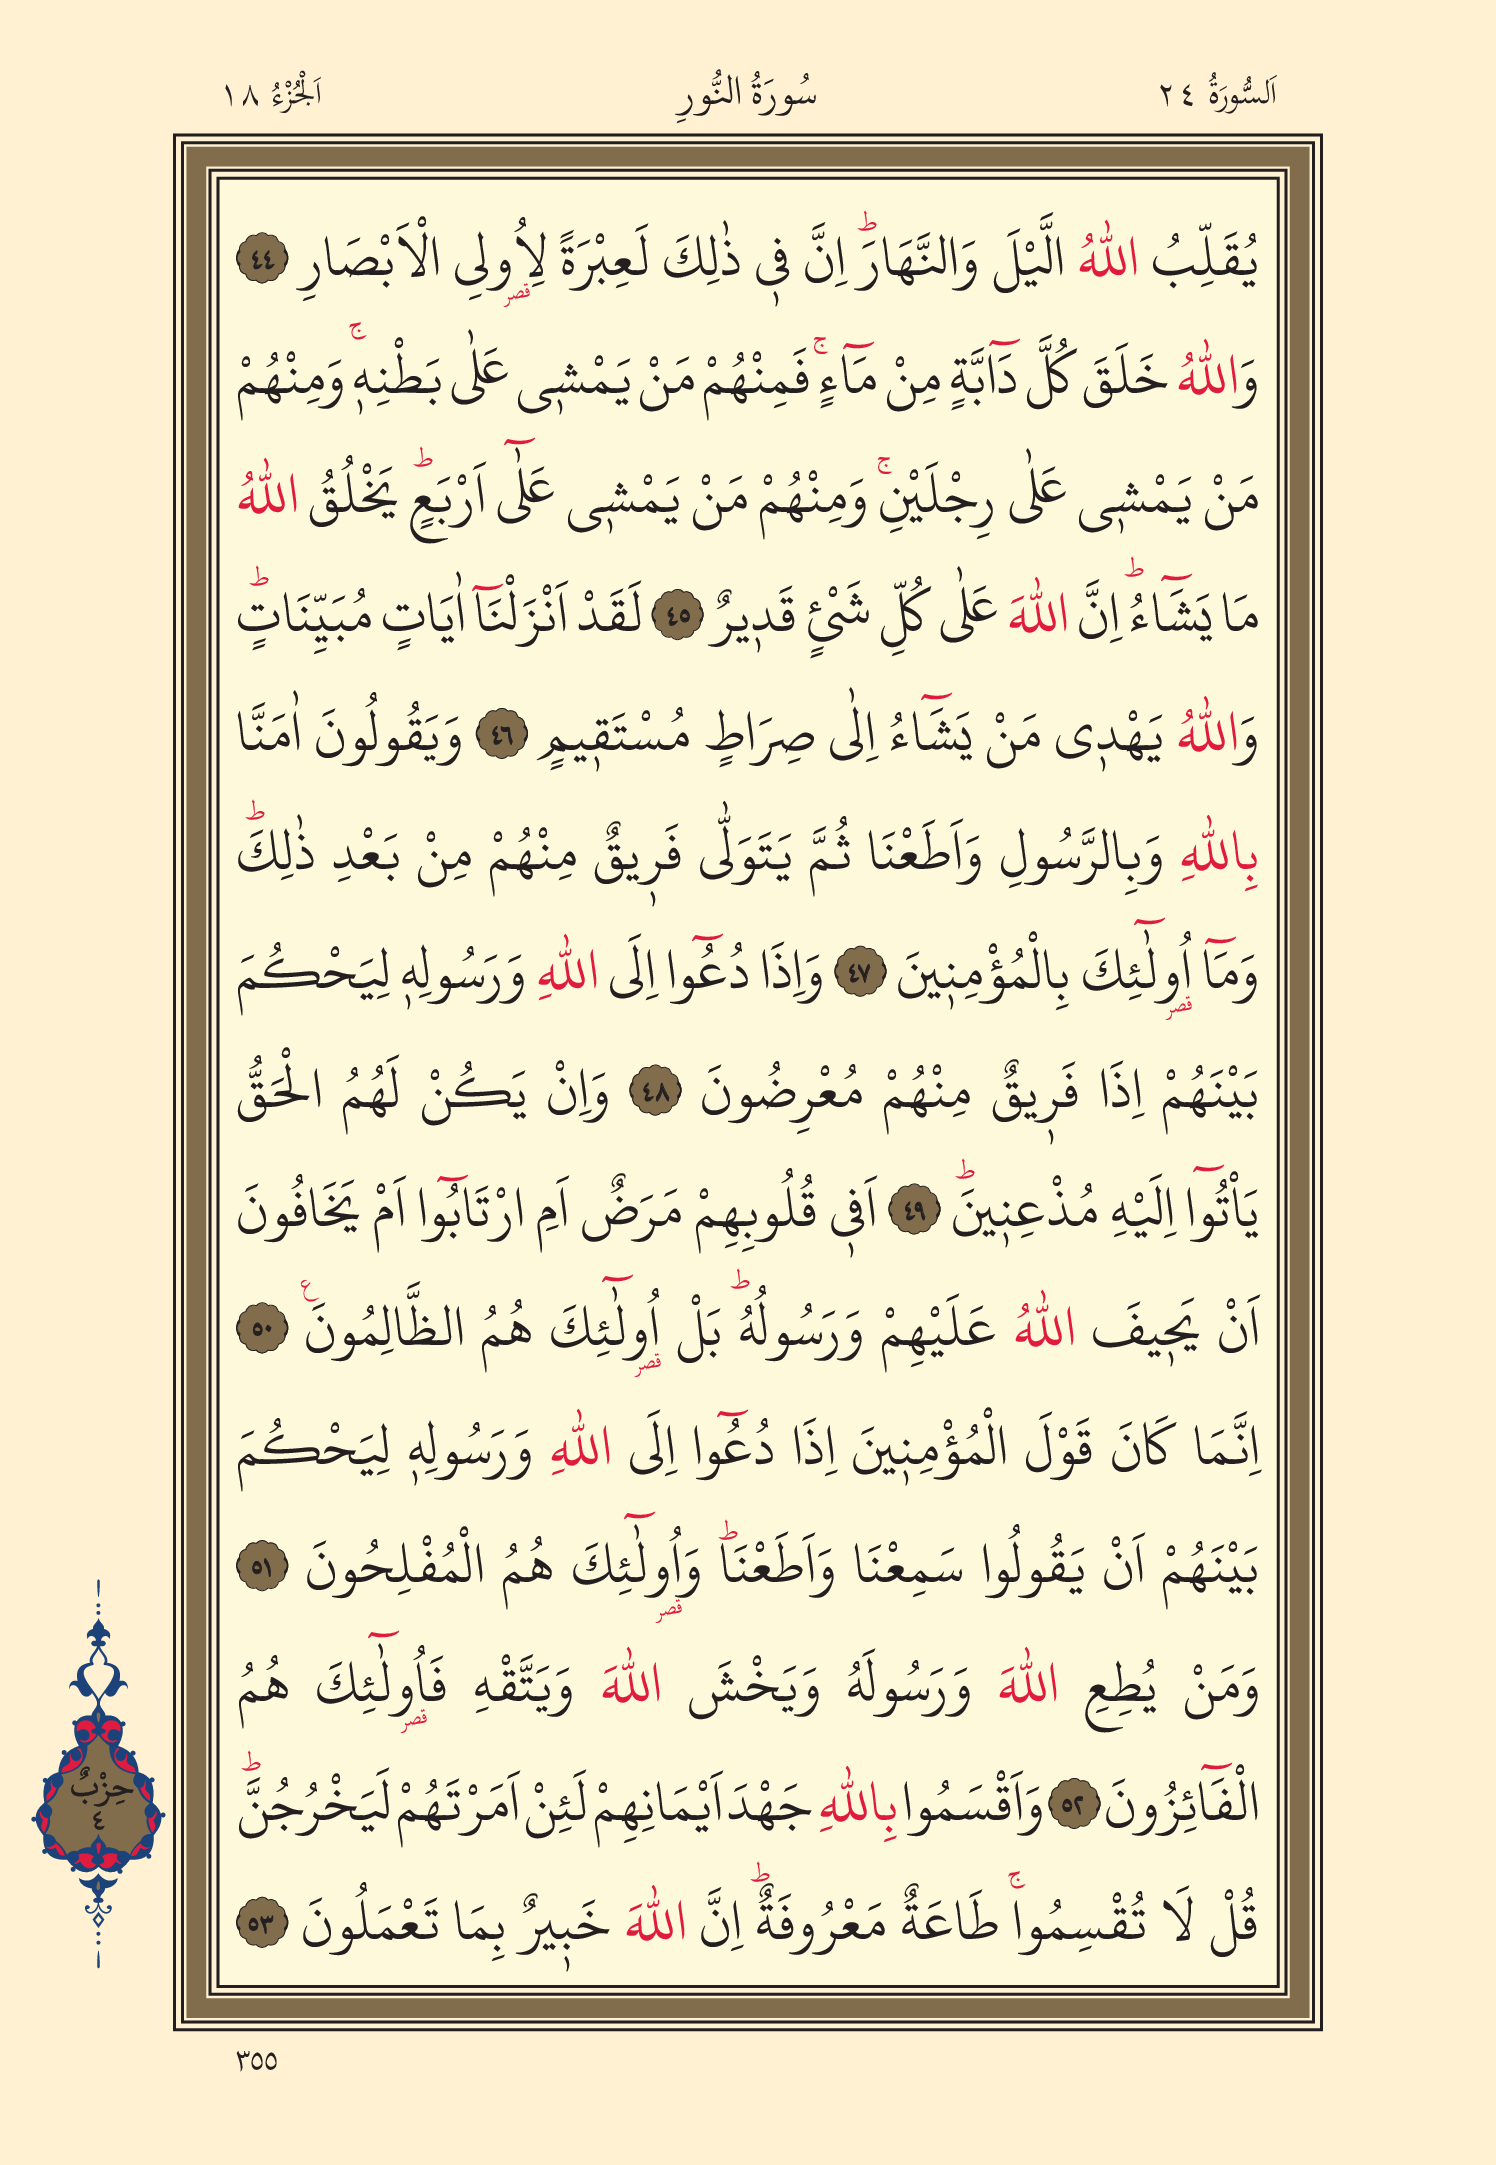 اَلسُّورَةُ ٢٤ سُورَةُ النُّورِ اَلْجُزْءُ ١٨
يُقَلِّبُ اللّٰهُ الَّيْلَ وَالنَّهَارَۜ اِنَّ ف۪ي ذٰلِكَ لَعِبْرَةً لِاُو۬لِي الْاَبْصَارِ ٤٤
وَاللّٰهُ خَلَقَ كُلَّ دَٓابَّةٍ مِنْ مَٓاءٍۚ فَمِنْهُمْ مَنْ يَمْش۪ي عَلٰى بَطْنِه۪ۚ وَمِنْهُمْ
مَنْ يَمْش۪ي عَلٰى رِجْلَيْنِۚ وَمِنْهُمْ مَنْ يَمْش۪ي عَلٰٓى اَرْبَعٍۜ يَخْلُقُ اللّٰهُ
مَا يَشَٓاءُۜ اِنَّ اللّٰهَ عَلٰى كُلِّ شَيْئٍ قَد۪يرٌ ٤٥ لَقَدْ اَنْزَلْنَٓا اٰيَاتٍ مُبَيِّنَاتٍۜ
وَاللّٰهُ يَهْد۪ي مَنْ يَشَٓاءُ اِلٰى صِرَاطٍ مُسْتَق۪يمٍ ٤٦ وَيَقُولُونَ اٰمَنَّا
بِاللّٰهِ وَبِالرَّسُولِ وَاَطَعْنَا ثُمَّ يَتَوَلّٰى فَر۪يقٌ مِنْهُمْ مِنْ بَعْدِ ذٰلِكَۜ
وَمَٓا اُو۬لٰٓئِكَ بِالْمُؤْمِن۪ينَ ٤٧ وَاِذَا دُعُٓوا اِلَى اللّٰهِ وَرَسُولِه۪ لِيَحْكُمَ
بَيْنَهُمْ اِذَا فَر۪يقٌ مِنْهُمْ مُعْرِضُونَ ٤٨ وَاِنْ يَكُنْ لَهُمُ الْحَقُّ
يَاْتُٓوا اِلَيْهِ مُذْعِن۪ينَۜ ٤٩ اَف۪ي قُلُوبِهِمْ مَرَضٌ اَمِ ارْتَابُٓوا اَمْ يَخَافُونَ
اَنْ يَح۪يفَ اللّٰهُ عَلَيْهِمْ وَرَسُولُهُۜ بَلْ اُو۬لٰٓئِكَ هُمُ الظَّالِمُونَ۟ ٥٠
اِنَّمَا كَانَ قَوْلَ الْمُؤْمِن۪ينَ اِذَا دُعُٓوا اِلَى اللّٰهِ وَرَسُولِه۪ لِيَحْكُمَ
بَيْنَهُمْ اَنْ يَقُولُوا سَمِعْنَا وَاَطَعْنَاۜ وَاُو۬لٰٓئِكَ هُمُ الْمُفْلِحُونَ ٥١
وَمَنْ يُطِعِ اللّٰهَ وَرَسُولَهُ وَيَخْشَ اللّٰهَ وَيَتَّقْهِ فَاُو۬لٰٓئِكَ هُمُ
الْفَٓائِزُونَ ٥٢ وَاَقْسَمُوا بِاللّٰهِ جَهْدَ اَيْمَانِهِمْ لَئِنْ اَمَرْتَهُمْ لَيَخْرُجُنَّۜ
قُلْ لَا تُقْسِمُواۚ طَاعَةٌ مَعْرُوفَةٌۜ اِنَّ اللّٰهَ خَب۪يرٌ بِمَا تَعْمَلُونَ ٥٣
حِزْبٌ
٤
٣٥٥